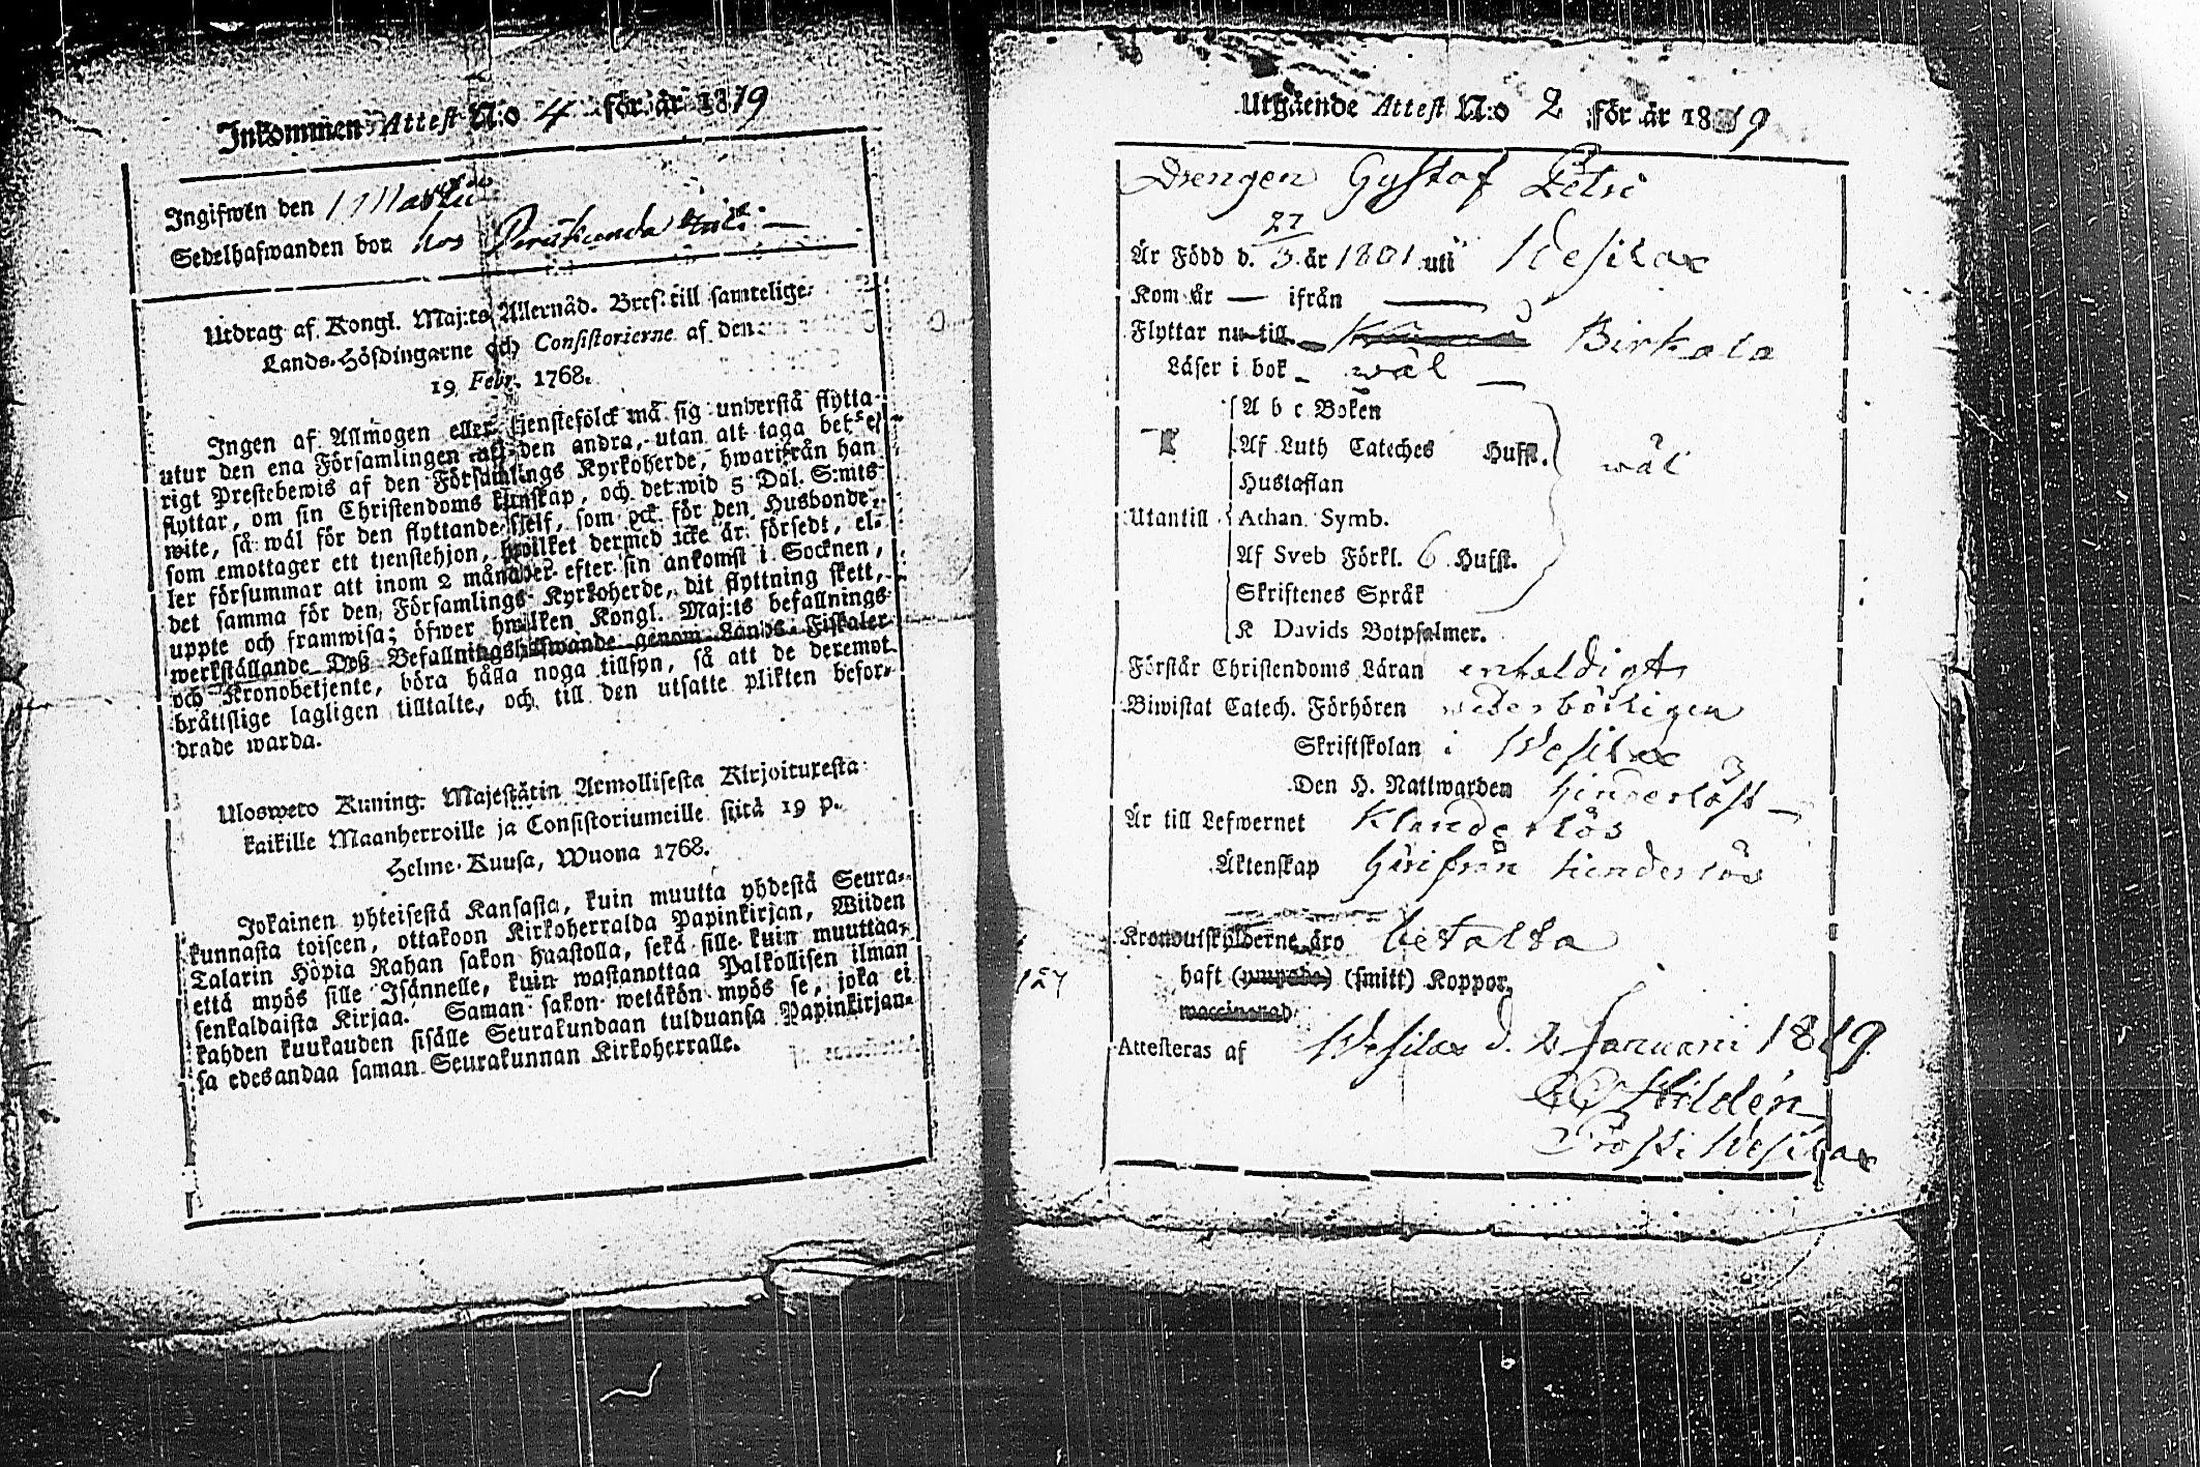 Inkommen Attest N:o 4 för år 1819
Ingifwen den 1 Martii
Sedelhafwanden bor hos
Utdrag af Kongl. Maj:ts Allernåd. Bref till samtelige
Lands-Höfdingarne och Consistorierne af den
19 Febr. 1768.
Ingen af Allmogen eller tjenstefölck må sig understå flytta
utur den ena Församlingen uti den andra, utan att taga behö-
rigt Prestebewis af den Församlings Kyrkoherde, hwarifrån han
flyttar, om sin Christendoms kunskap, och det wid 5 Dal. S:mts
wite, så wäl för den flyttande sjelf, som ock för den Husbonde,
som emottager ett tienstehjon, hwilket dermed icke är försedt, el-
ler försummar att inom 2 månader efter sin ankomst i Socknen,
det samma för den Församlings Kyrkoherde, dit flyttning skett,
uppte och framwisa; öfwer hwilken Kongl. Maj:ts befallnings
werkställande Deß Befallningshafwande genom Lands-Fiskaler
och Kronobetjente, böra hålla noga tillsyn, så att de deremot
bråttslige lagligen tilltalte, och till den utsatte plikten befor-
drade warda.
Ulosweto Kuning. Majestätin Armollisesta Kirjoituxesta
kaikille Maanherroille ja Consistoriumeille siitä 19 p.
Helme-Kuusa, Wuona 1768.
Jokainen yhteisestä Kansasta, kuin muutta yhdestä Seura-
kunnasta toiseen, ottakoon Kirkoherralda Papinkirjan, Wiiden
Talarin Hopia Rahan sakon haastolla, sekä sille kuin muuttaa,
että myös sille Isännelle, kuin wastanottaa Palkollisen ilman
senkaldaista Kirjaa. Saman sakon wetäkön myös se, joka ei
kahden kuukauden sisälle Seurakundaan tulduansa Papinkirjan-
sa edesandaa saman Seurakunnan Kirkoherralle.
Utgående Attest N:o 2 för år 1819
Drengen Gustaf Petri
Är Född d. 27/3 år 1801 uti Wesilax
Kom år — ifrån —
Flyttar nu till Birkala
Läser i bok wäl
A b c Boken
Af Luth Cateches Hufst. wäl
Hustaflan
Utantill Athan. Symb.
Af Sveb Förkl. 6 Hufst.
Skriftenes Språk
K Davids Botpsalmer.
Förstår Christendoms Läran enfaldigt
Biwistat Catech. Förhören wederbörligen
Skriftskolan i Wesilax
Den H. Nattwarden hinderlöst
Är till Lefwernet Klanderlös
Äktenskap härifrån hinderlös
Kronoutskylderne äro betalta
haft (ympade) (smitt) Koppor,
157
waccinerad
Attesteras af Wesilax d. 2 Januarii 1819
Hildén
Prost i Wesilax